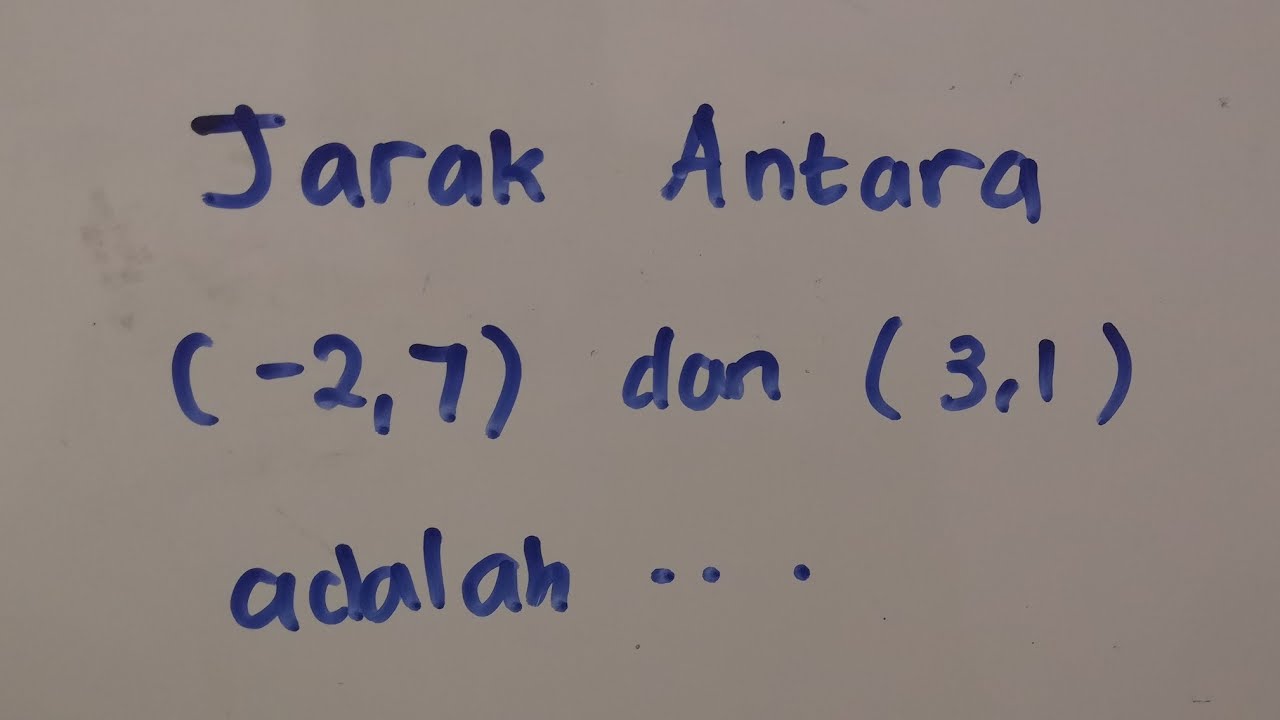 Jarak Antara
(-2,7) dan (3,1)
adalah ...